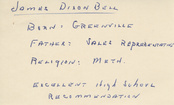 James Dixon Bell
Born: Greenville
Father: Sales Representative
Religion: Meth.
Excellent High School
Recommendation